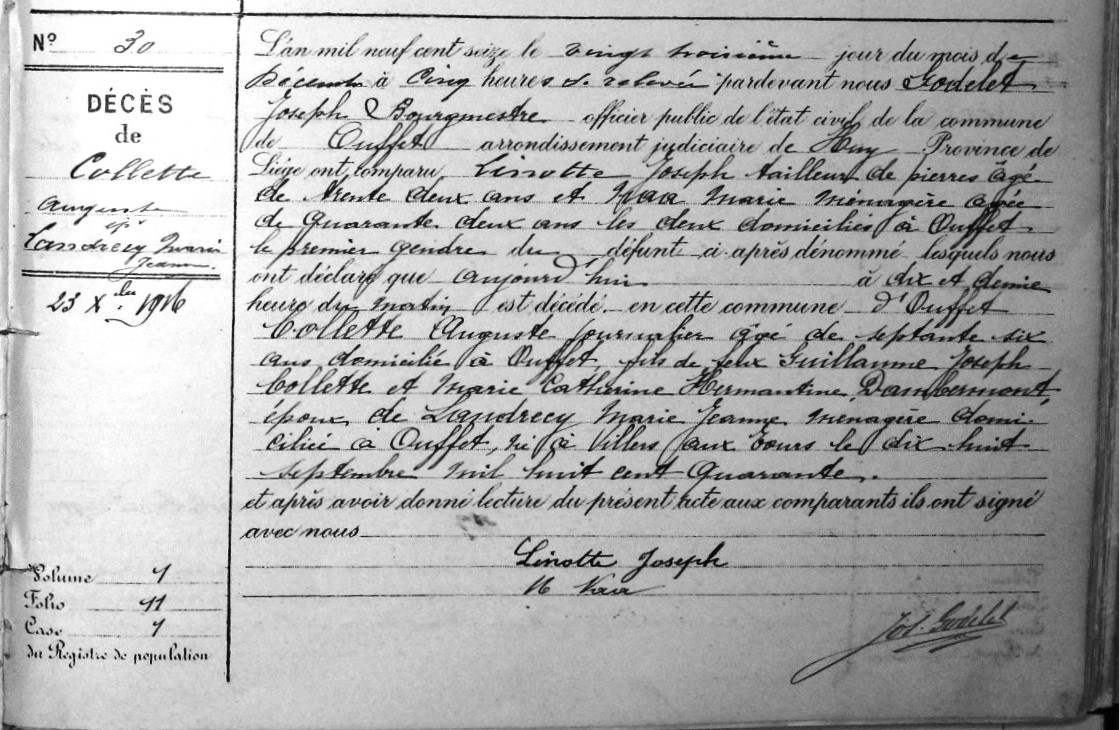 Nº 30
DÉCÈS
de
Collette
Auguste
ép
Landrecy Marie
Jeanne
23 Xbre 1916
Volume 1
Folio 11
Case 1
du Registre de population
L'an mil neuf cent seize le vingt troisième jour du mois de
Décembre à Cinq heures de relevée pardevant nous Godelet
Joseph Bourgmestre officier public de l'état civil de la commune
de Ouffet arrondissement judiciaire de Huy Province de
Liége ont comparu Linotte Joseph tailleur de pierres âgé
de trente deux ans et Marie ménagère agée
de Quarante deux ans les deux domiciliés à Ouffet
le premier gendre du défunt ci-après dénommé lesquels nous
ont déclaré que aujourd'hui à dix et demie
heure du matin est décédé en cette commune d'Ouffet
Collette Auguste journalier âgé de septante six
ans, domicilié à Ouffet, fils de feux Guillaume Joseph
Collette et Marie Catherine Hermantine Dambermont,
époux de Landrecy Marie Jeanne ménagère domi-
ciliée a Ouffet, né à Villers aux Tours le dix huit
septembre mil huit cent Quarante.
et après avoir donné lecture du présent acte aux comparants ils ont signé
avec nous
Linotte Joseph
Jos. Godelet